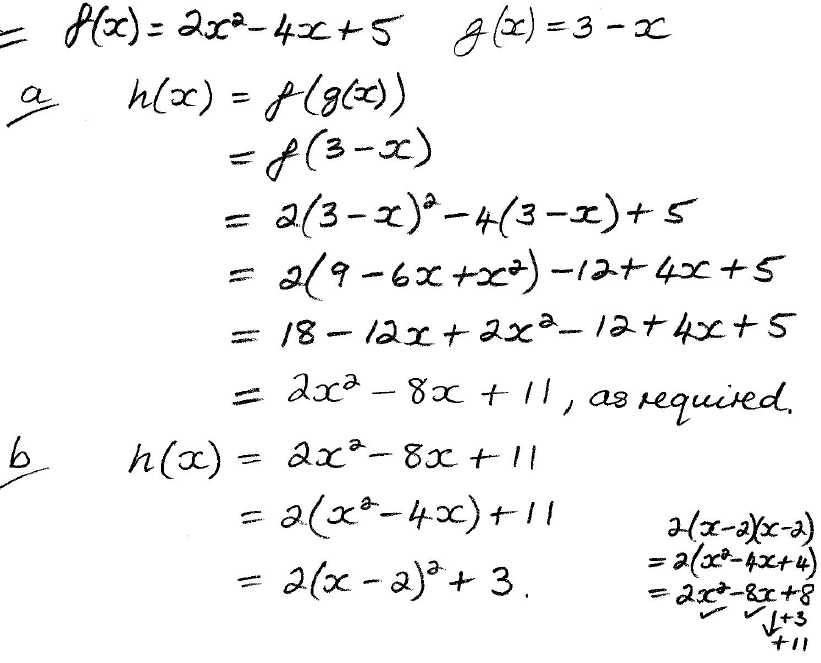 = f(x) = 2x² - 4x + 5 g(x) = 3 - x
a h(x) = f(g(x))
= f(3 - x)
= 2(3 - x)² - 4(3 - x) + 5
= 2(9 - 6x + x²) - 12 + 4x + 5
= 18 - 12x + 2x² - 12 + 4x + 5
= 2x² - 8x + 11, as required.
b h(x) = 2x² - 8x + 11
= 2(x² - 4x) + 11
= 2(x - 2)² + 3.
2(x-2)(x-2)
= 2(x²-4x+4)
= 2x²-8x+8
✓ ✓ ↓+3
+11